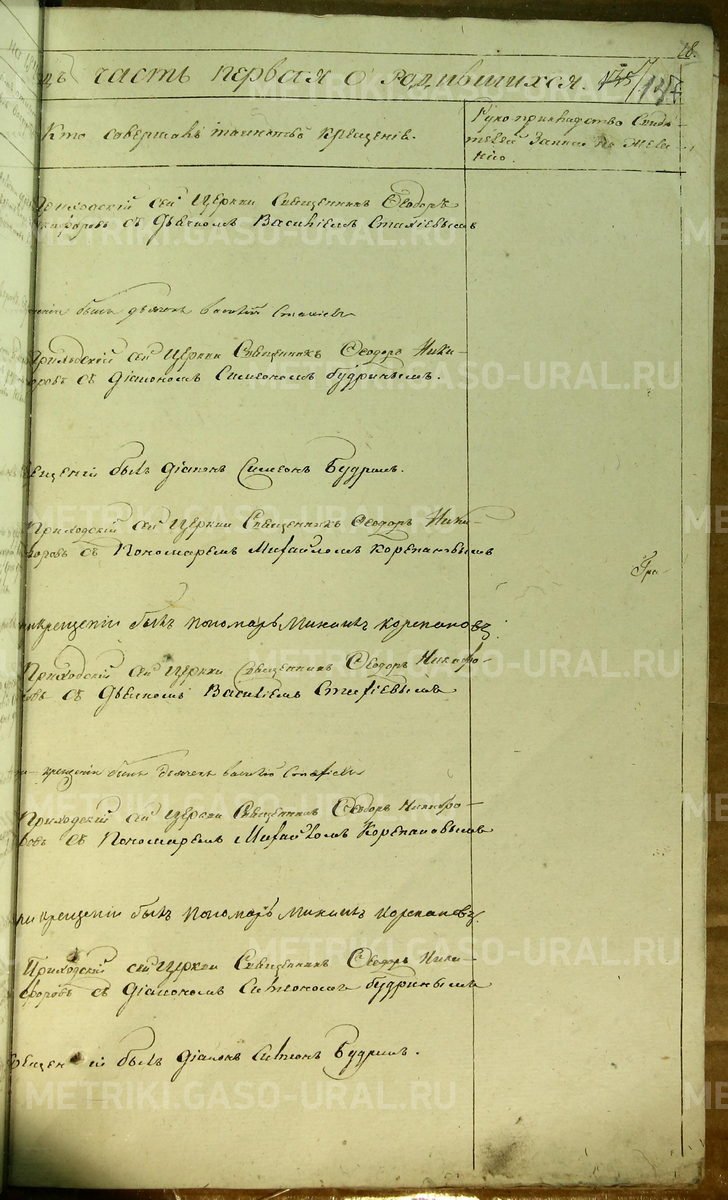 18.
дъ часть первая о родившихся. 135/137
Кто совершалъ таинство крещенiя.
Рукоприкладство Свиде-
телей Записи по жела-
нiю.
Приходскiй сей Церкви Священникъ Ѳеодоръ
Никифоровъ съ Дьячкомъ Василiемъ Стахiевымъ
щенiи былъ дьячекъ Василiй Стахiевъ
Приходскiй сей Церкви Священникъ Ѳеодоръ Ники-
форовъ съ Дiакономъ Симеономъ Будринымъ.
рещенiи былъ Дiаконъ Симеонъ Будринъ.
Приходскiй сей Церкви Священникъ Ѳеодоръ Ники-
форовъ съ Пономаремъ Михайломъ Корепановымъ
Гра-
при крещенiи былъ Пономарь Михаилъ Корепановъ
Приходскiй сей Церкви Священникъ Ѳеодоръ Никифо-
ровъ съ Дьячкомъ Василiемъ Стахiевымъ
при крещенiи былъ дьячекъ Василiй Стахiевъ
Приходскiй сей Церкви Священникъ Ѳеодоръ Никифо-
ровъ съ Пономаремъ Михайломъ Корепановымъ
при крещенiи былъ Пономарь Михаилъ Корепановъ
Приходскiй сей Церкви Священникъ Ѳеодоръ Ники-
форовъ съ Дiакономъ Симеономъ Будринымъ
рещенiи былъ Дiаконъ Симеонъ Будринъ.
METRIKI.GASO-URAL.RU